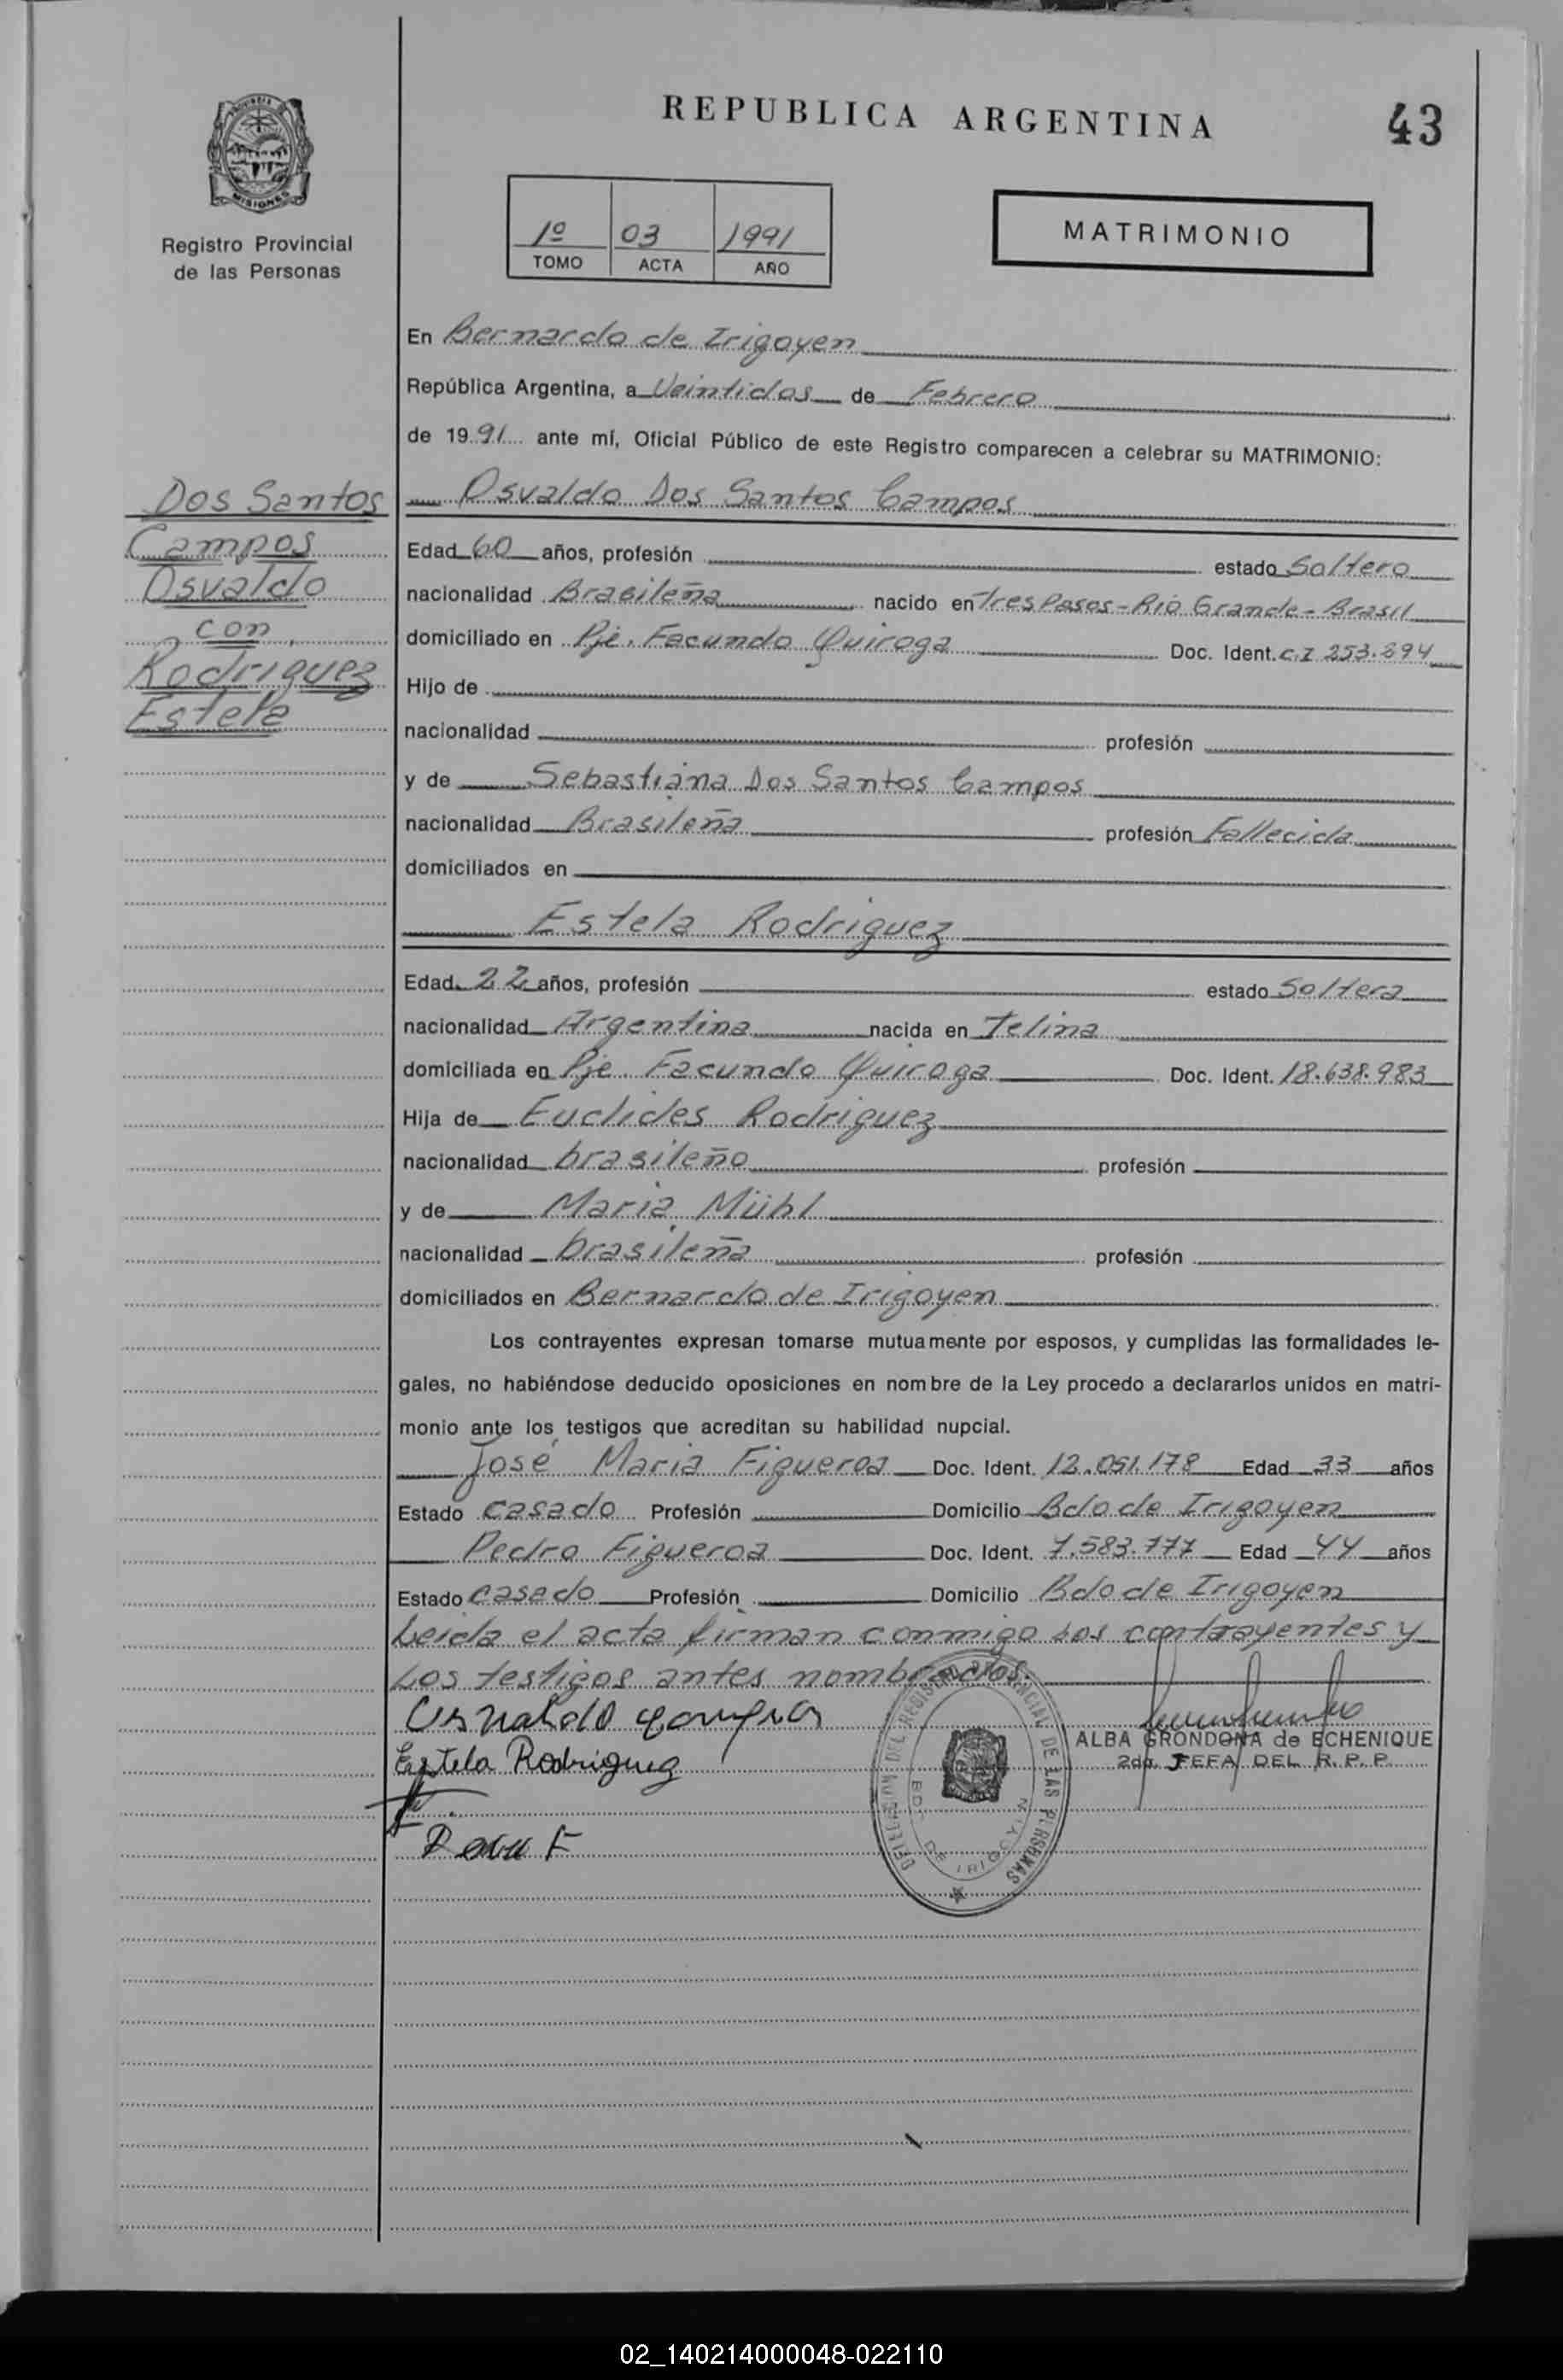 REPUBLICA ARGENTINA
43
MISIONES
Registro Provincial
de las Personas
1º 03 1991
TOMO ACTA AÑO
MATRIMONIO
En Bernardo de Irigoyen
República Argentina, a Veintidos de Febrero
de 1991 ante mí, Oficial Público de este Registro comparecen a celebrar su MATRIMONIO:
Dos Santos
Campos
Osvaldo
con
Rodriguez
Estela
Osvaldo Dos Santos Campos
Edad 60 años, profesión estado Soltero
nacionalidad Brasileña nacido en Tres Pasos - Rio Grande - Brasil
domiciliado en Pje. Facundo Quiroga Doc. Ident. C.I 253.894
Hijo de
nacionalidad profesión
y de Sebastiana Dos Santos Campos
nacionalidad Brasileña profesión Fallecida
domiciliados en
Estela Rodriguez
Edad 22 años, profesión estado Soltera
nacionalidad Argentina nacida en Telina
domiciliada en Pje. Facundo Quiroga Doc. Ident. 18.638.983
Hija de Euclides Rodriguez
nacionalidad brasileño profesión
y de Maria Mühl
nacionalidad brasileña profesión
domiciliados en Bernardo de Irigoyen
Los contrayentes expresan tomarse mutuamente por esposos, y cumplidas las formalidades le-
gales, no habiéndose deducido oposiciones en nombre de la Ley procedo a declararlos unidos en matri-
monio ante los testigos que acreditan su habilidad nupcial.
José Maria Figueroa Doc. Ident. 12.051.178 Edad 33 años
Estado casado Profesión Domicilio Bdo de Irigoyen
Pedro Figueroa Doc. Ident. 7.583.777 Edad 44 años
Estado casado Profesión Domicilio Bdo de Irigoyen
Leida el acta firman conmigo los contrayentes y
Los testigos antes nombrados.
Estela Rodriguez
ALBA GRONDONA de ECHENIQUE
2da. JEFA DEL R. P. P.
DEL REGISTRO PROVINCIAL DE LAS PERSONAS
BDO DE IRIGOYEN
02_140214000048-022110